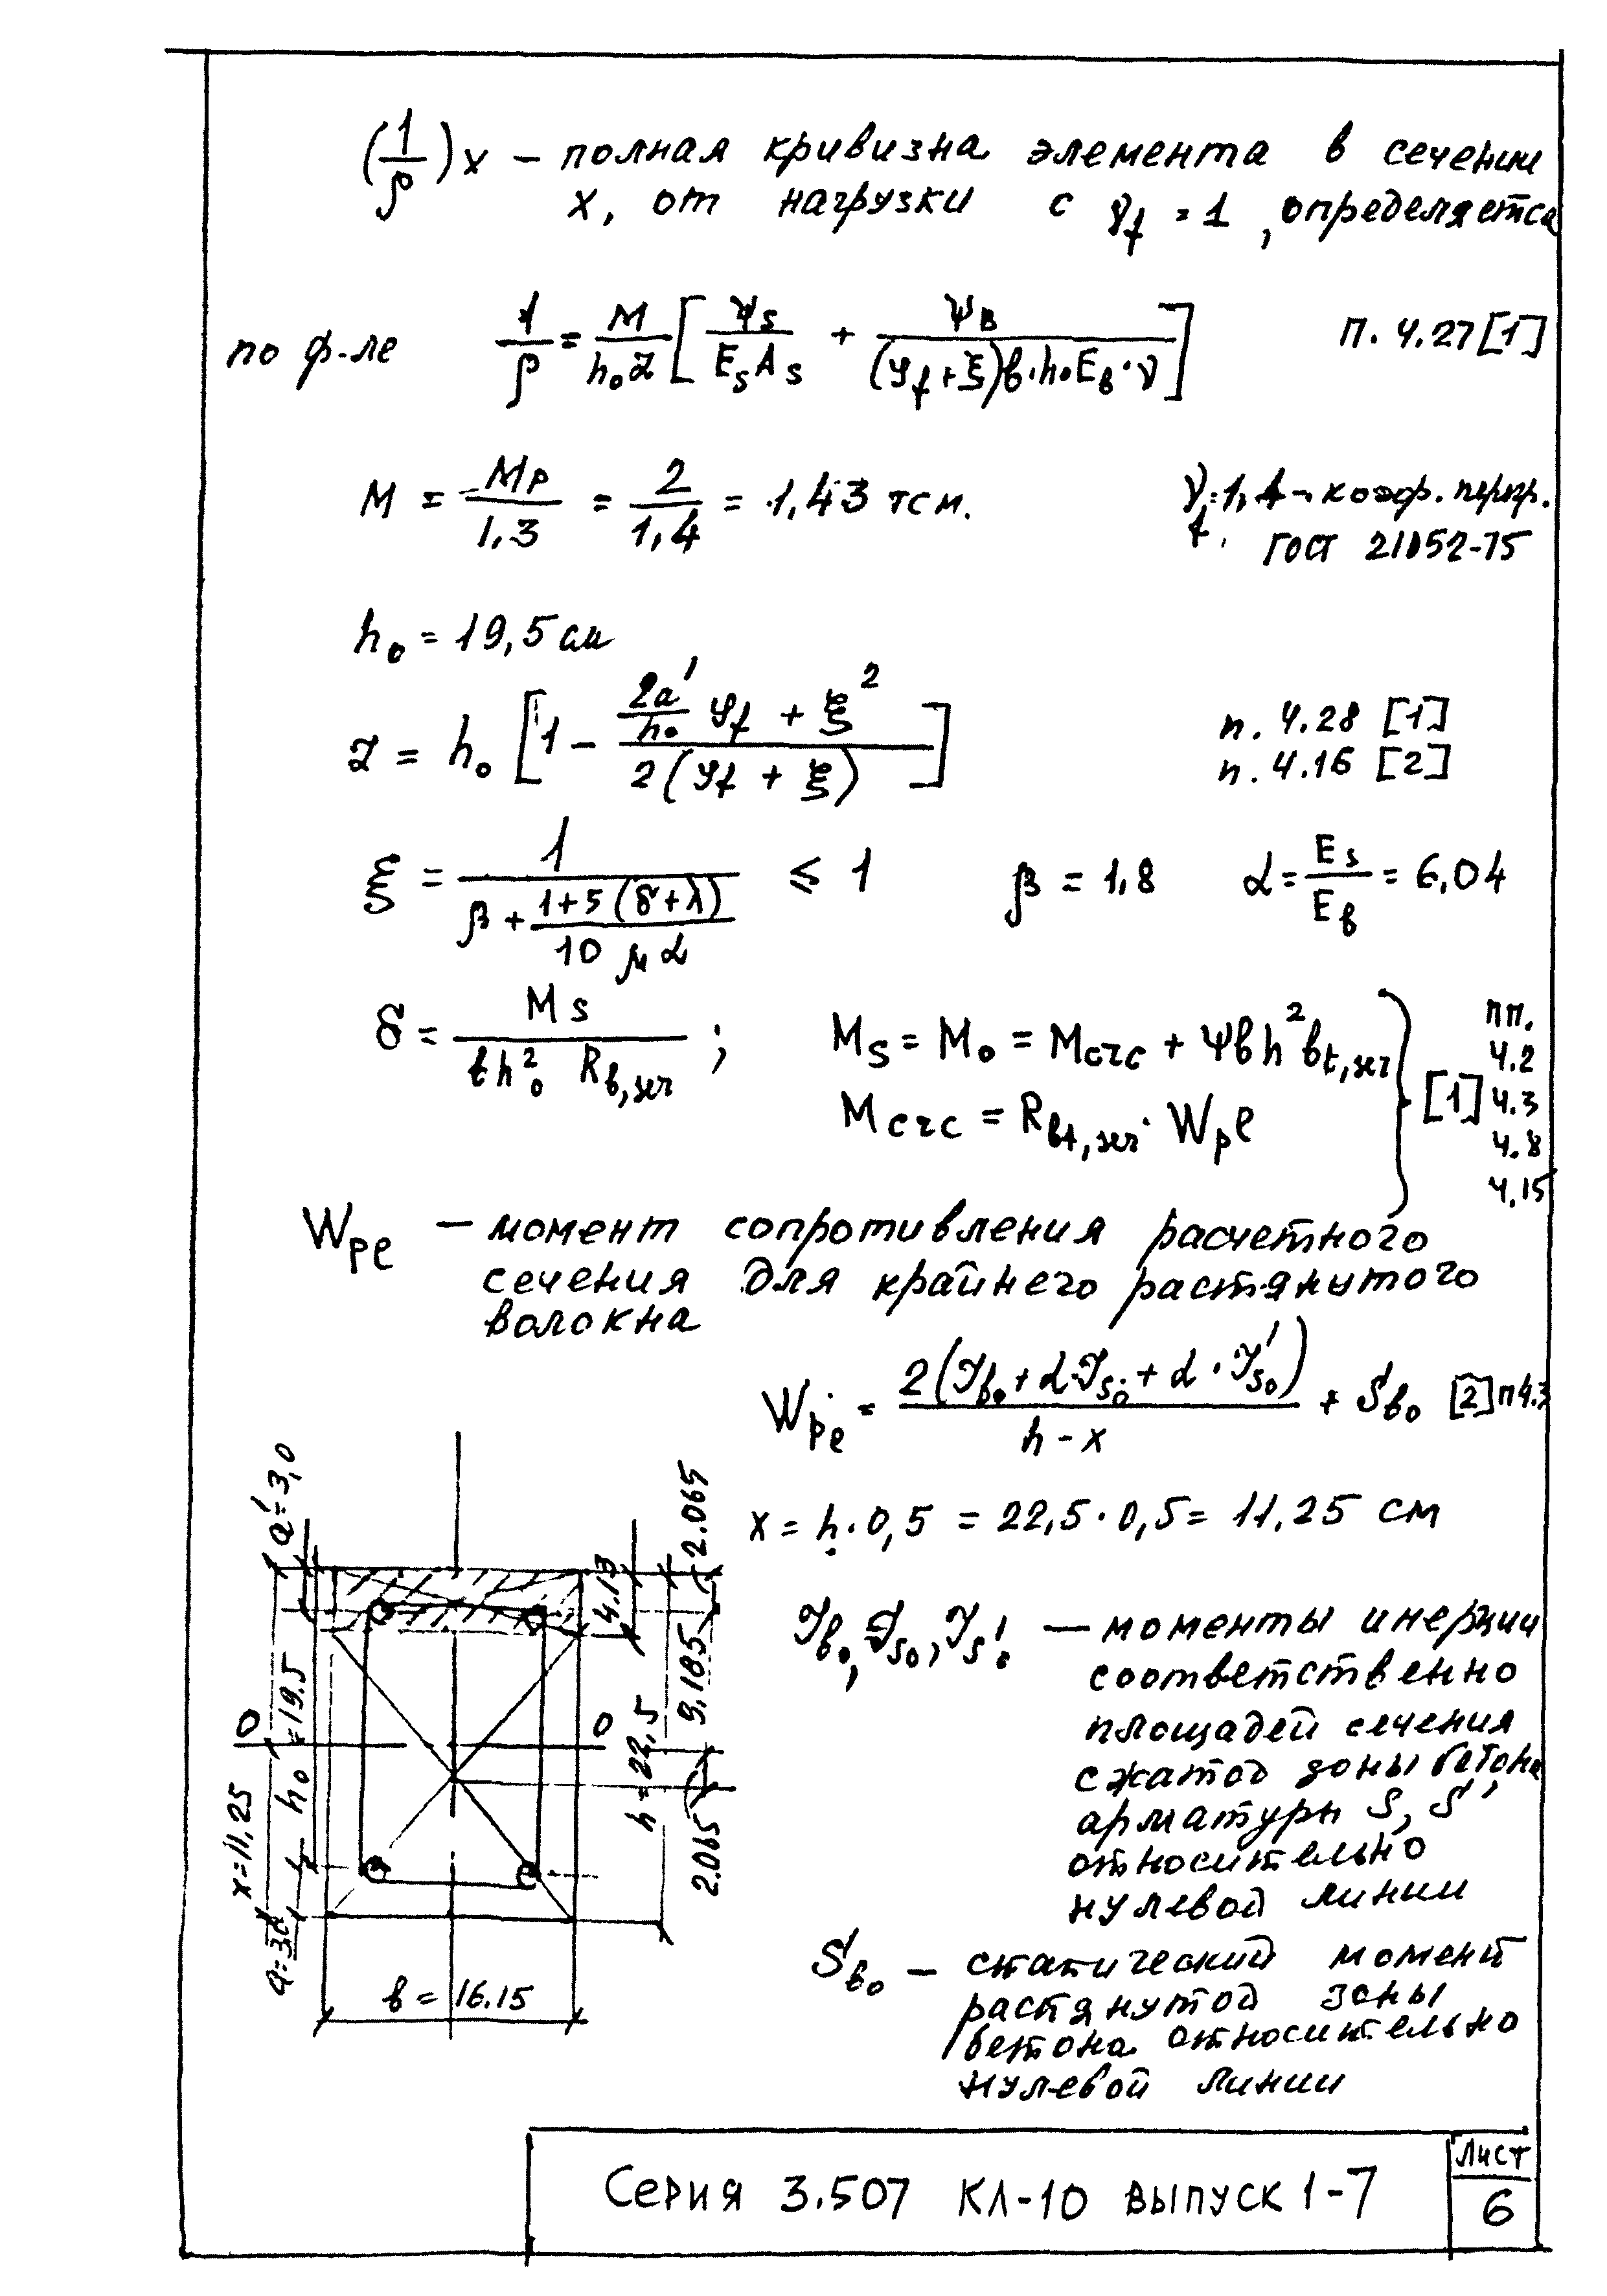 (1/ρ)x – полная кривизна элемента в сечении
x, от нагрузки с γf = 1, определяется
по ф-ле 1/ρ = M/(h₀z) [ψs/(EsAs) + ψв/((φf+ξ)в·h₀Eв·ν)] П. 4.27 [1]
M = Mр/1,3 = 2/1,4 = 1,43 тсм. γf = 1,4 – коэф. перегр.
ГОСТ 21052-75
h₀ = 19,5 см
z = h₀ [1 – (2a'/h₀ φf + ξ²)/(2(φf + ξ))] п. 4.28 [1]
п. 4.16 [2]
ξ = 1/(β + (1+5(δ+λ))/(10μα)) ≤ 1 β = 1,8 α = Es/Eв = 6,04
δ = Ms/(вh₀² Rв,ser) ; Ms = M₀ = Mcrc + ψвh²вt,ser
Mcrc = Rвt,ser · Wpe [1] пп. 4.2 4.3 4.8 4.15
Wpe – момент сопротивления расчетного
сечения для крайнего растянутого
волокна
Wpe = 2(Jво + α·Jso + α·J'so)/(h – x) + Sво [2] п 4.3
x = h·0,5 = 22,5·0,5 = 11,25 см
Jво, Jso, J's₀ – моменты инерции
соответственно
площадей сечения
сжатой зоны бетона
арматуры S, S'
относительно
нулевой линии
Sво – статический момент
растянутой зоны
бетона относительно
нулевой линии
a' = 3,0
2.065
4.13
9.185
h₀ = 19.5
0
0
h = 22,5
x = 11,25
2.065
a = 3,0
в = 16.15
Серия 3.507 КЛ-10 выпуск 1-7
Лист
6